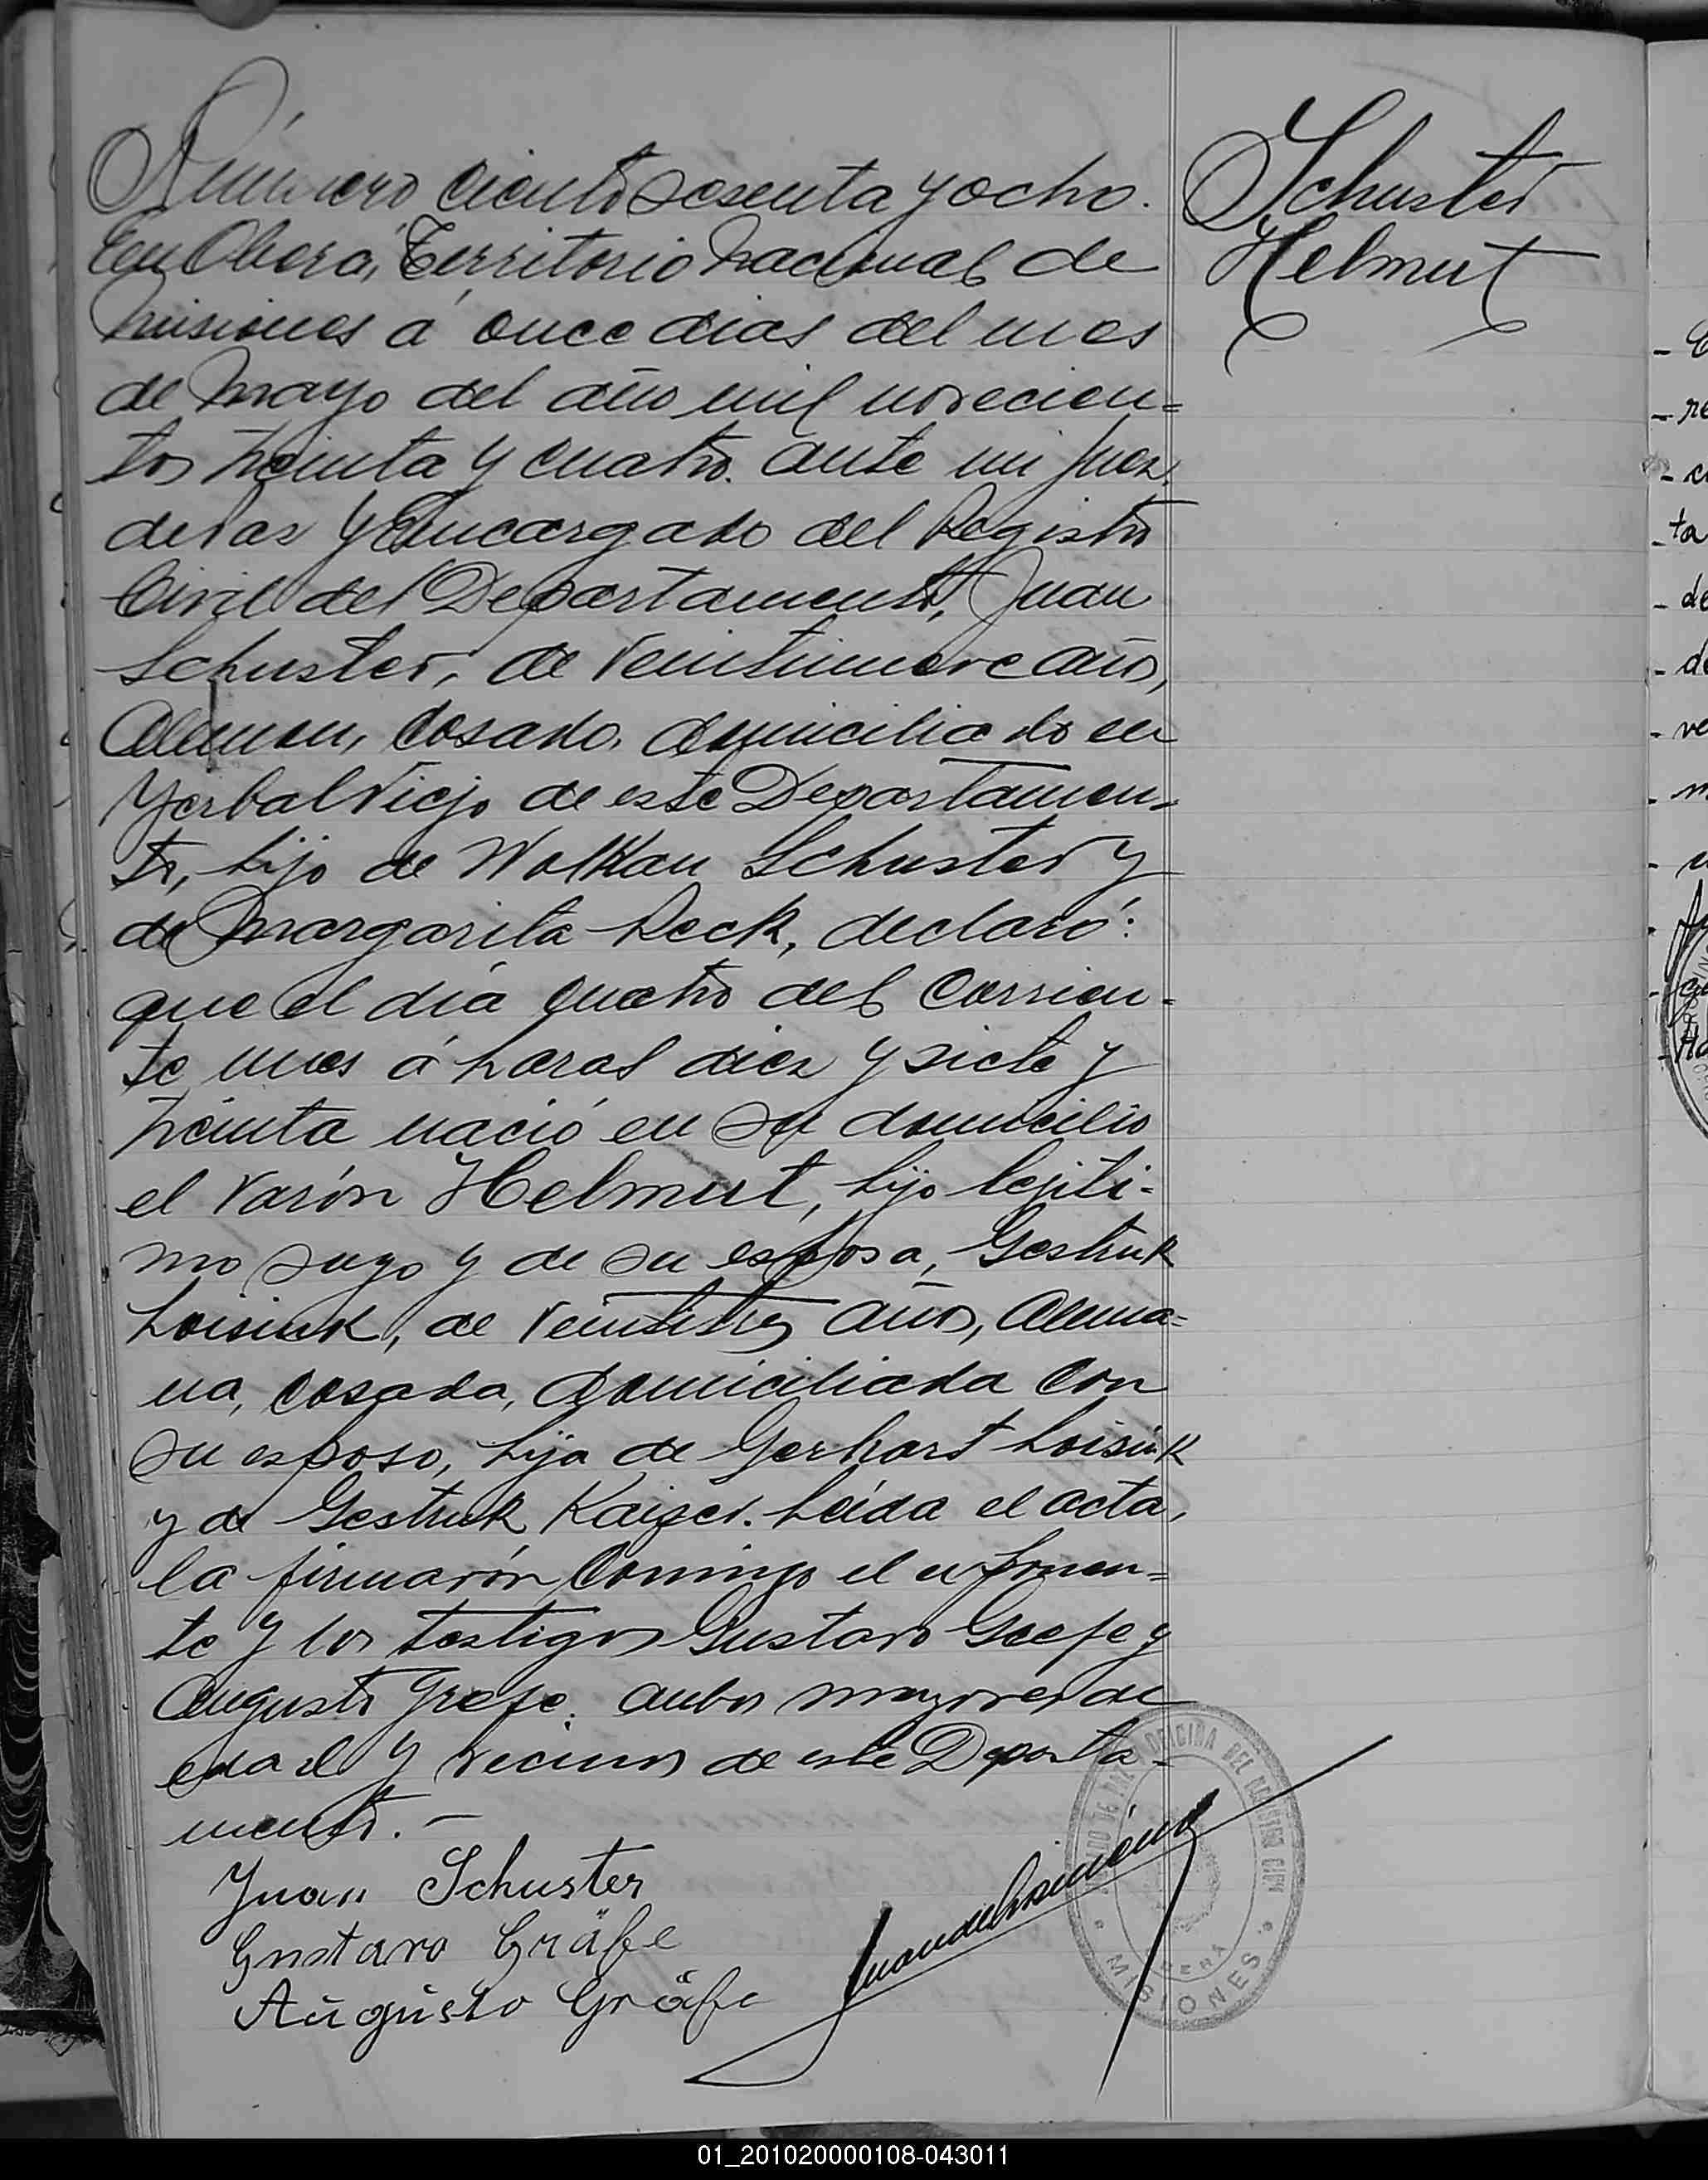 Número ciento sesenta y ocho.
En Oberá, Territorio Nacional de
Misiones á once dias del mes
de Mayo del año mil novecien=
tos treinta y cuatro. ante mi Juez
de Paz y Encargado del Registro
Civil del Departamento, Juan
Schuster, de veintinueve años,
Aleman, casado, domiciliado en
Yerbal Viejo de este Departamen-
to, hijo de Schuster y
de Margarita Reck, declaró:
que el día cuatro del corrien-
te mes á horas diez y siete y
treinta nació en su domicilio
el varón Helmut, hijo legiti-
mo suyo y de su esposa, Gestruk
Loisink, de veintitres años, Alema=
na, casada, domiciliada con
su esposo, hija de Gerhart Loisink
y de Gestruk Kaiser. Leida el acta,
la firmarón conmigo el exponen=
te y los testigos Gustavo Graefe y
Augusto Grefe. ambos mayores de
edad y vecinos de este Departa-
mento.-
Juan Schuster
Gustavo Gräfe
Augusto Gräfe
Schuster
Helmut
OFICINA DEL REGISTRO CIVIL
OBERÁ
MISIONES
- re
ta
- de
- de
- ve
01_201020000108-043011